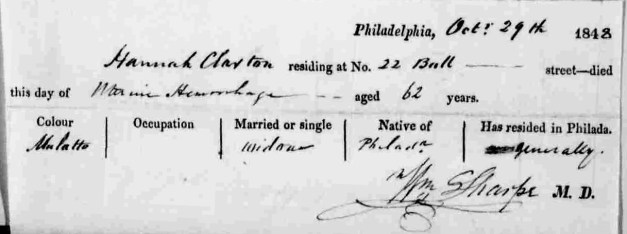 Philadelphia, Octr 29th 1848
Hannah Claxton residing at No. 22 Bull street—died
this day of Uterine Hemorrhage aged 62 years.
Colour Occupation Married or single Native of Has resided in Philada.
Mulatto widow Philada generally.
Wm Sharpe M. D.